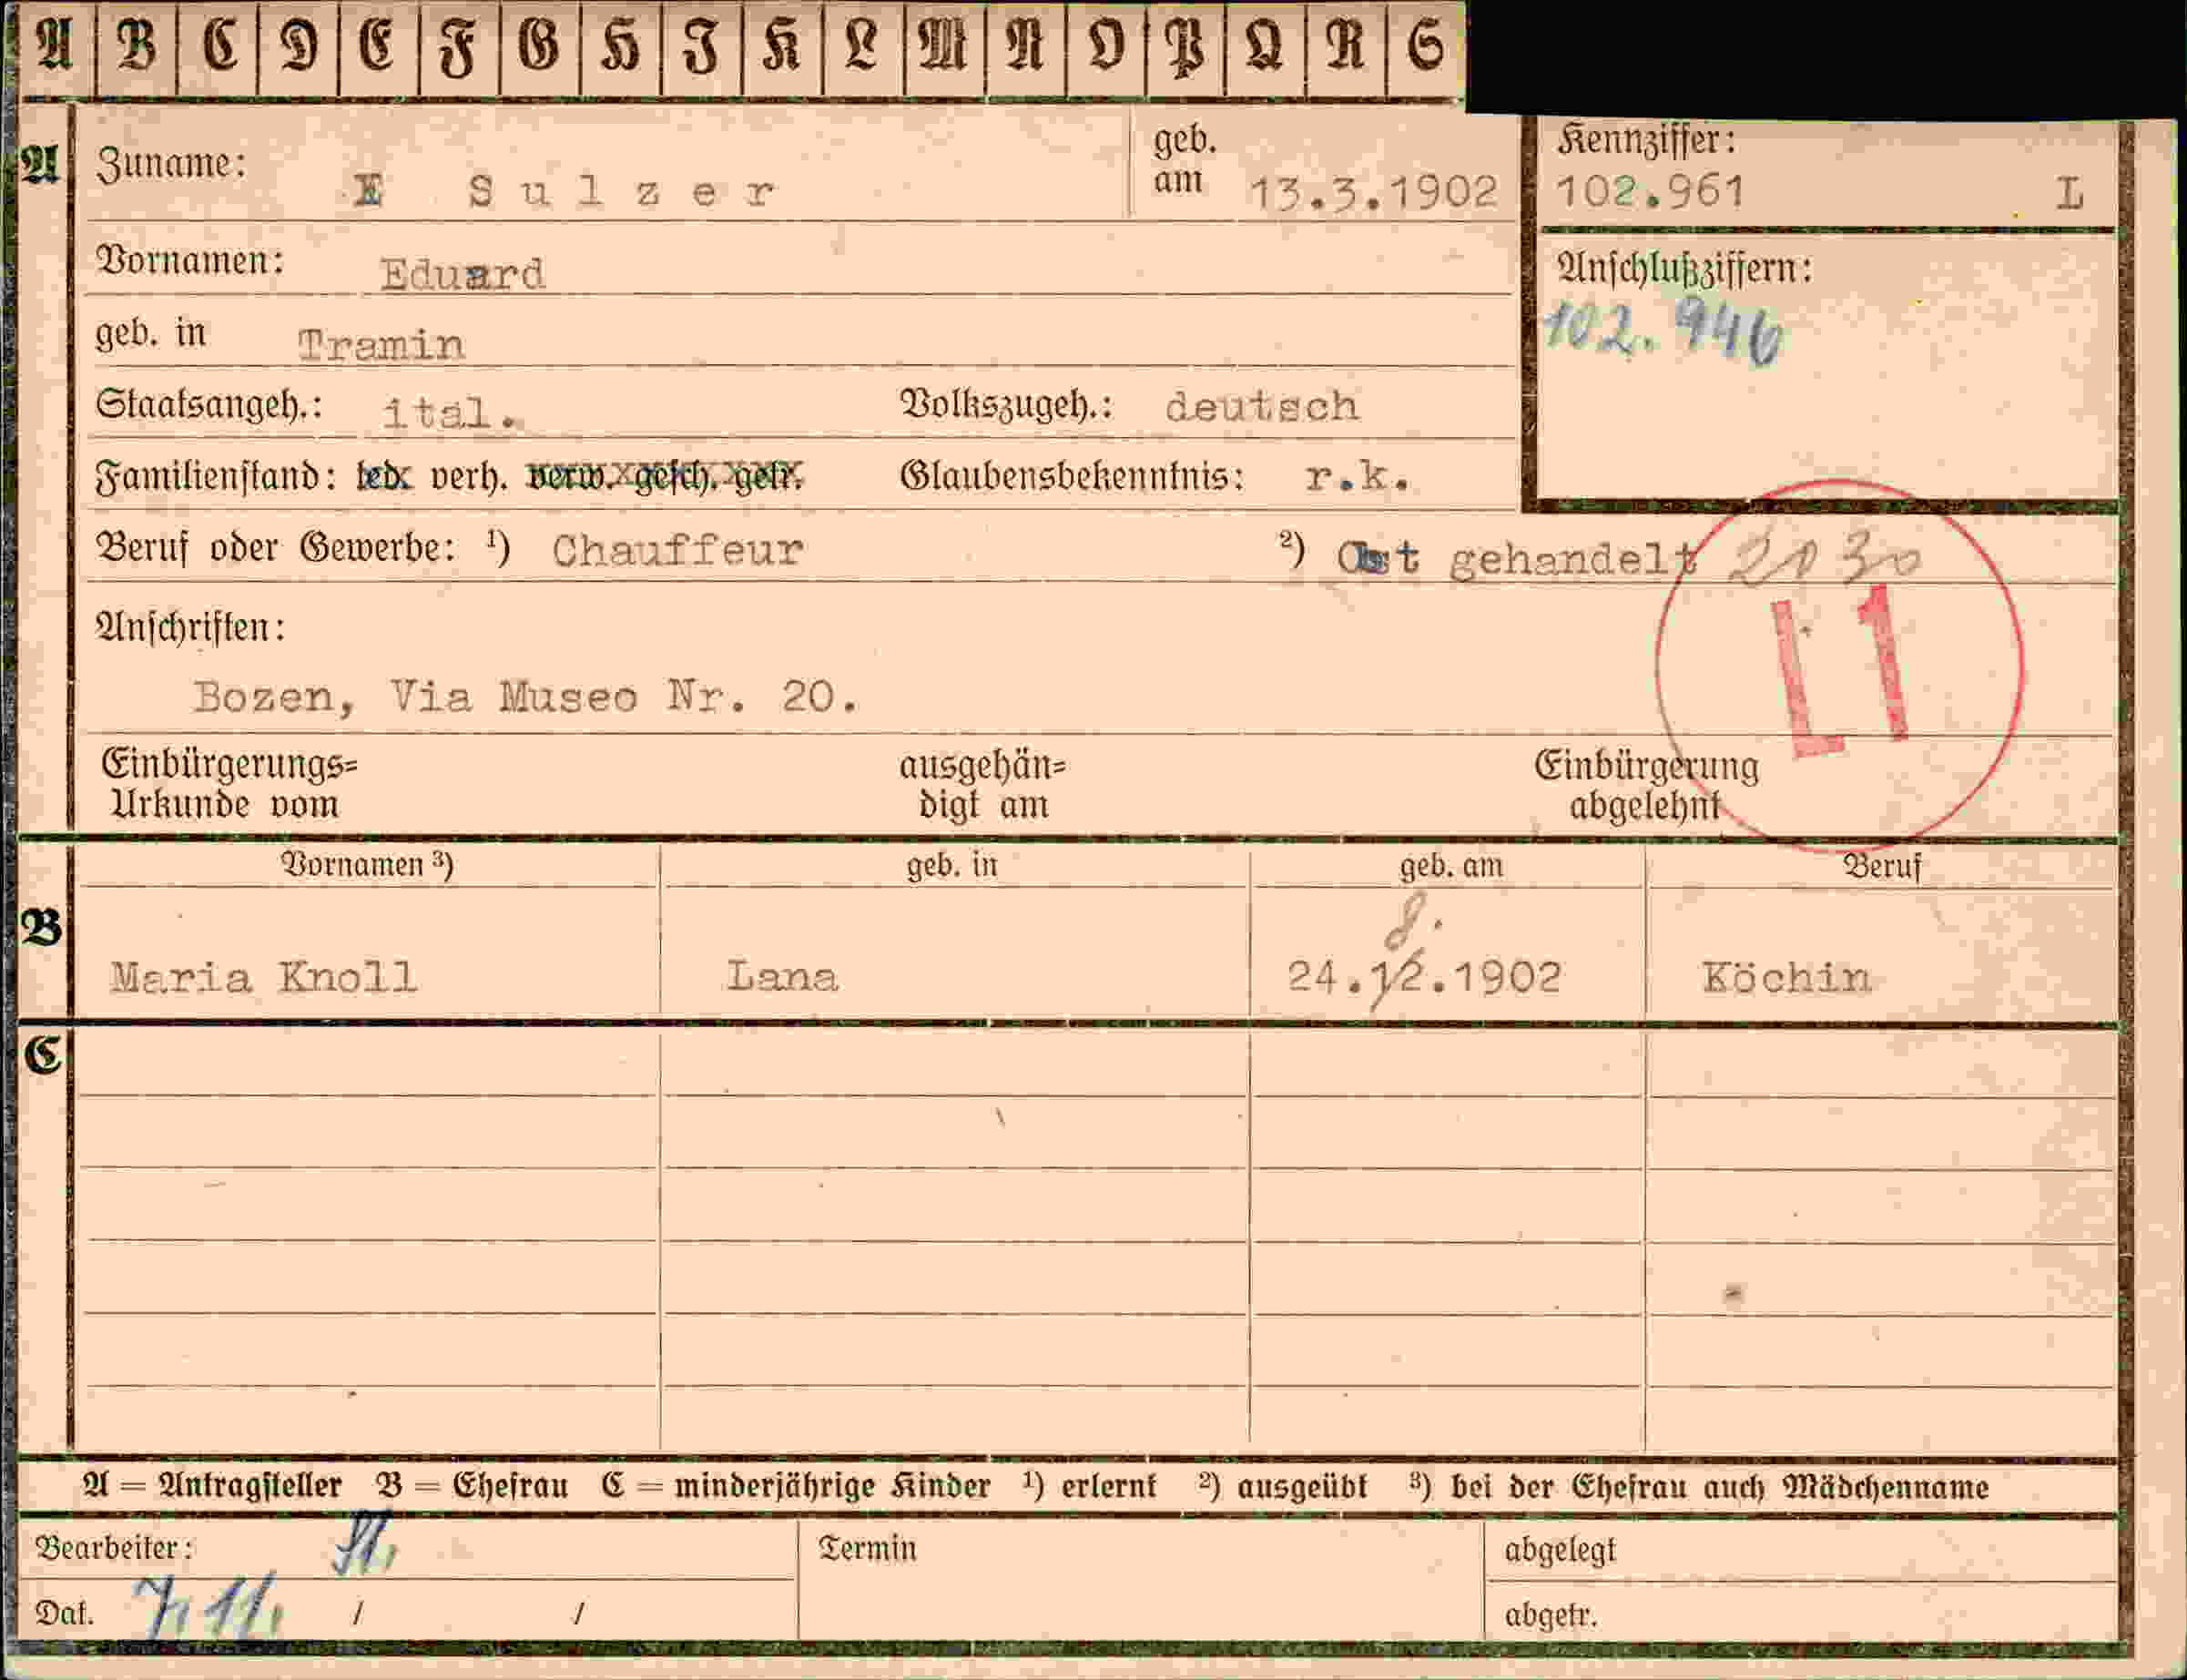 A B C D E F G H J K L M N O P Q R S
A Zuname: S u l z e r geb. am 13.3.1902
Kennziffer: 102.961 L
Vornamen: Eduard
Anschlußziffern:
102.946
geb. in Tramin
Staatsangeh.: ital. Volkszugeh.: deutsch
Familienstand: led. verh. verw. gesch. getr. Glaubensbekenntnis: r.k.
Beruf oder Gewerbe: ¹) Chauffeur ²) gehandelt 2130
L1
Anschriften:
Bozen, Via Museo Nr. 20.
Einbürgerungs= ausgehän= Einbürgerung
Urkunde vom digt am abgelehnt
Vornamen ³) geb. in geb. am Beruf
8.
B Maria Knoll Lana 24.12.1902 Köchin
C
A = Antragsteller B = Ehefrau C = minderjährige Kinder ¹) erlernt ²) ausgeübt ³) bei der Ehefrau auch Mädchenname
Bearbeiter: Termin abgelegt
Dat. 7. 11. / / abgetr.